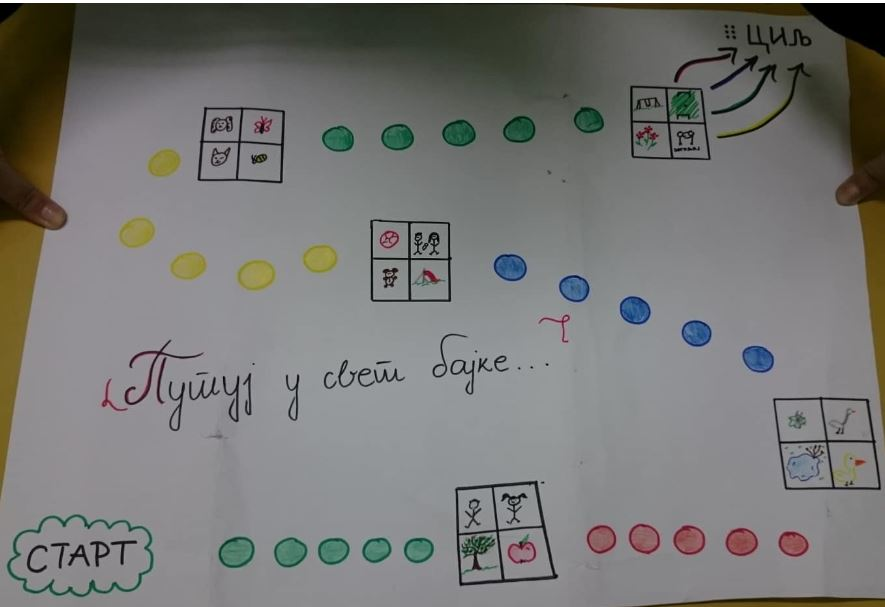 ЦИЉ
Путуј у свет бајке...
СТАРТ